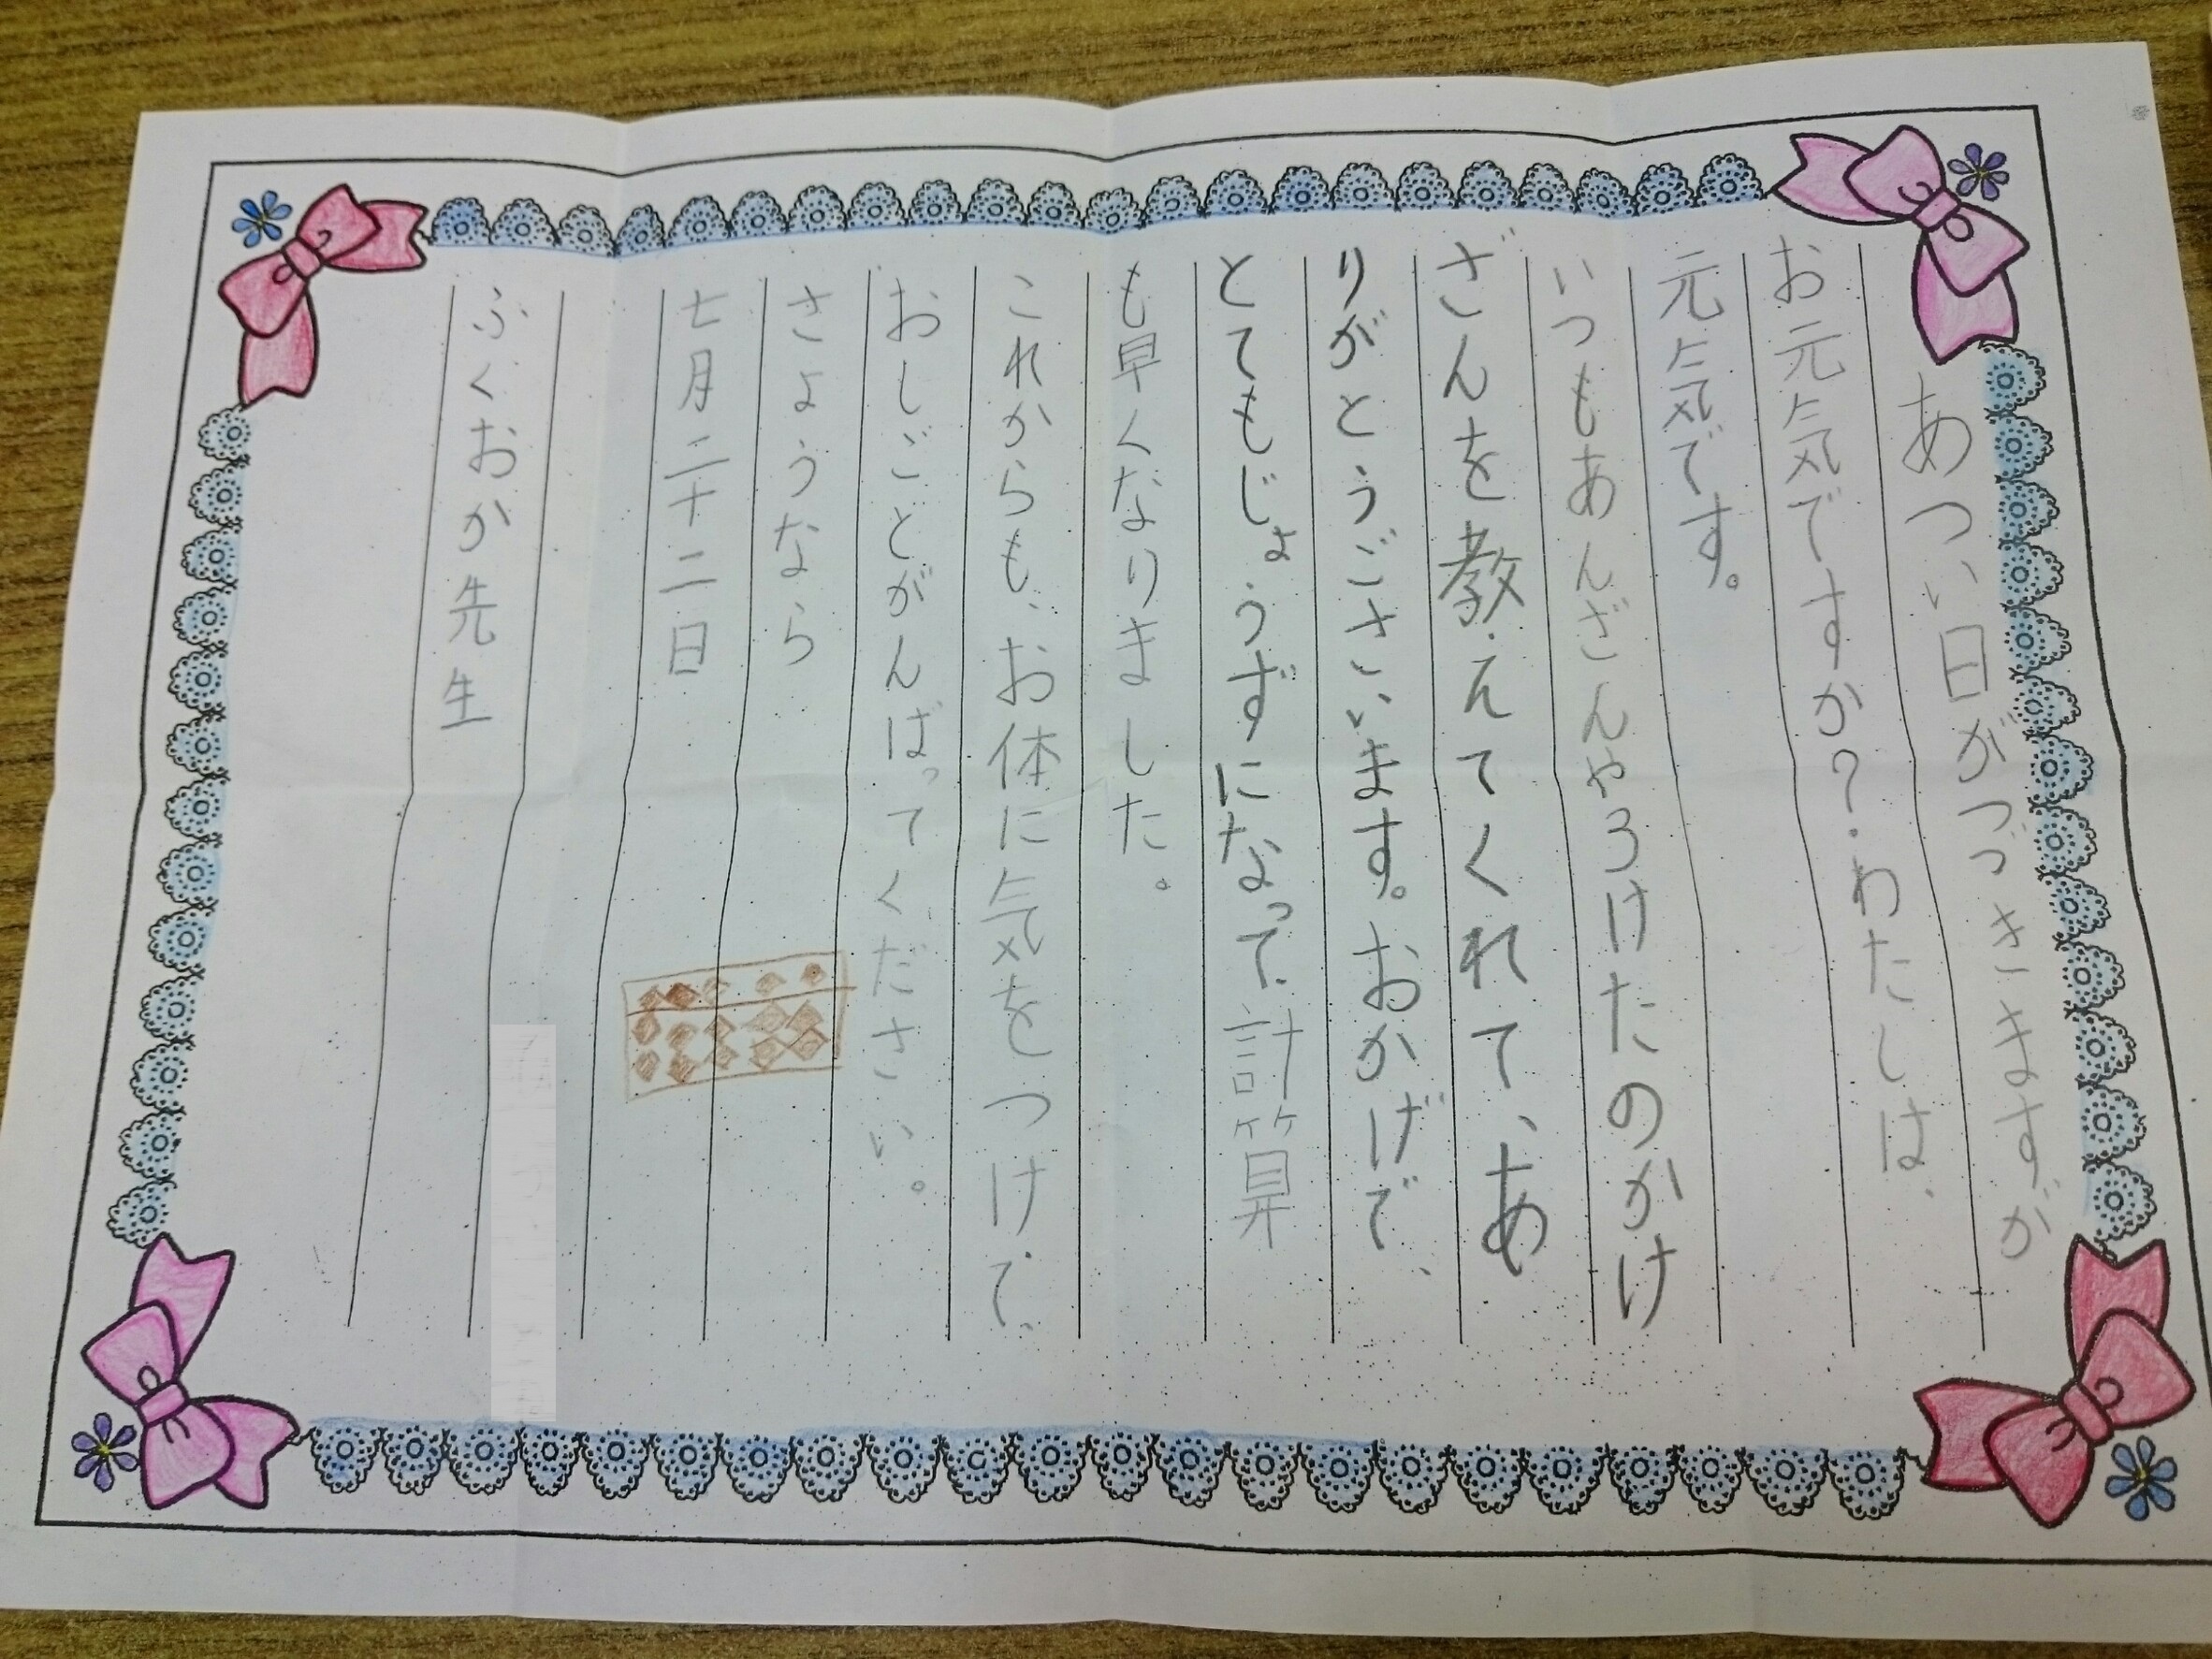 あつい日がつづきますが
お元気ですか?わたしは、
元気です。
いつもあんざんやろけたのかけ
ざんを教えてくれて、あ
りがとうございます。おかげで、
とてもじょうずになって、計算
も早くなりました。
これからも、お体に気をつけて、
おしごとがんばってください。
さようなら
七月二十二日
ふくおか先生